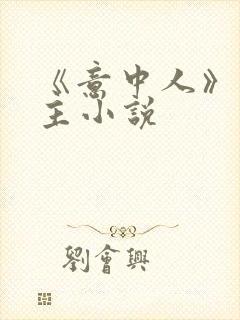 《意中人》
主小說
劉會興